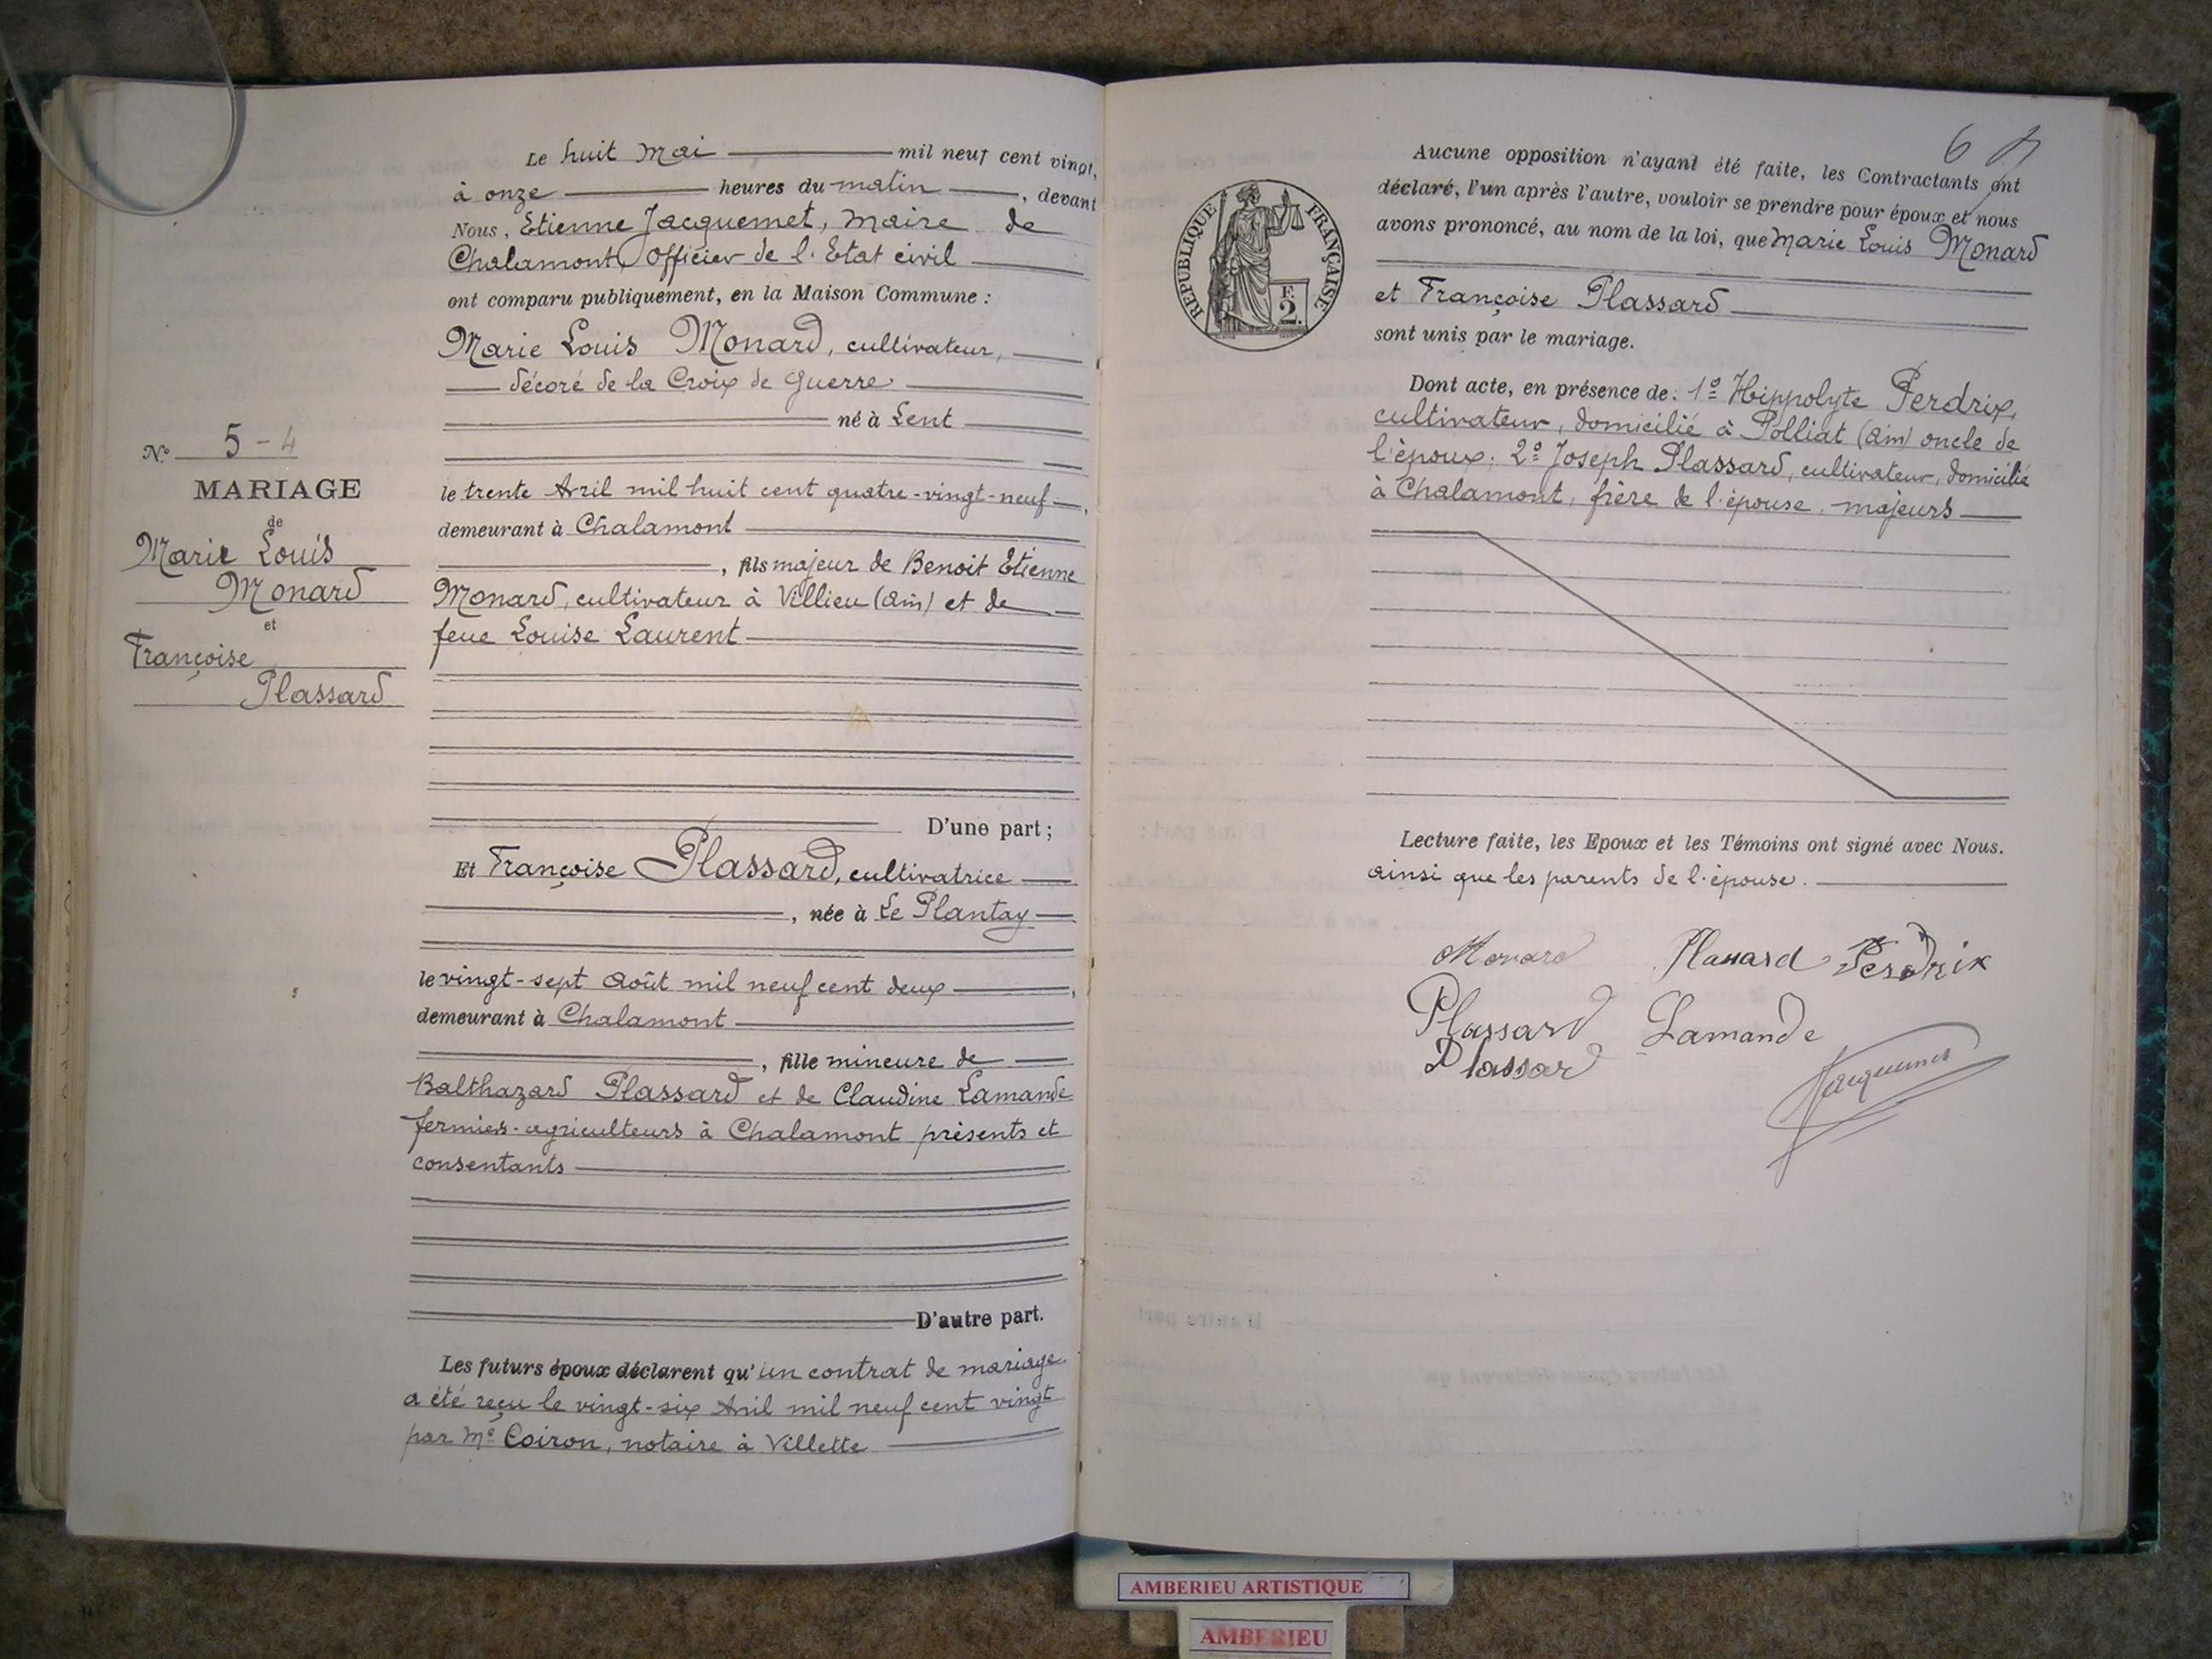 N° 5-4
MARIAGE
de
Marie Louis
Monard
et
Françoise
Plassard
Le huit Mai mil neuf cent vingt,
à onze heures du matin, devant
Nous, Etienne Jacquemet, Maire de
Chalamont, Officier de l'Etat civil
ont comparu publiquement, en la Maison Commune :
Marie Louis Monard, cultivateur,
décoré de la Croix de Guerre
né à Lent
le trente Avril mil huit cent quatre-vingt-neuf,
demeurant à Chalamont
, fils majeur de Benoit Etienne
Monard, cultivateur à Villieu (Ain) et de
feue Louise Laurent
D'une part ;
Et Françoise Plassard, cultivatrice
, née à Le Plantay
le vingt-sept Août mil neuf cent deux,
demeurant à Chalamont
, fille mineure de
Balthazard Plassard et de Claudine Lamande
fermiers-agriculteurs à Chalamont présents et
consentants
D'autre part.
Les futurs époux déclarent qu'un contrat de mariage
a été reçu le vingt-six Avril mil neuf cent vingt
par Me Coiron, notaire à Villette
6
RÉPUBLIQUE FRANÇAISE
F.
2.
Aucune opposition n'ayant été faite, les Contractants ont
déclaré, l'un après l'autre, vouloir se prendre pour époux et nous
avons prononcé, au nom de la loi, que Marie Louis Monard
et Françoise Plassard
sont unis par le mariage.
Dont acte, en présence de : 1° Hippolyte Perdrix,
cultivateur, domicilié à Polliat (Ain) oncle de
l'époux ; 2° Joseph Plassard, cultivateur, domicilié
à Chalamont, frère de l'épouse, majeurs
Lecture faite, les Epoux et les Témoins ont signé avec Nous.
ainsi que les parents de l'épouse.
Monard Plassard Perdrix
Plassard Lamande
Plassard
Jacquemet
AMBERIEU ARTISTIQUE
AMBERIEU